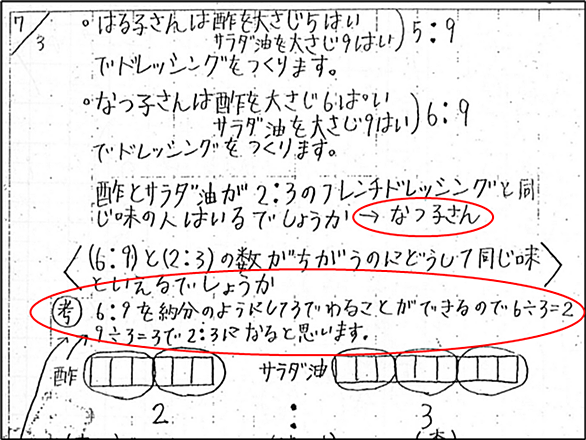 7/3
○はる子さんは酢を大さじ5はい
サラダ油を大さじ9はい)5:9
でドレッシングをつくります。
○なつ子さんは酢を大さじ6ぱい
サラダ油を大さじ9はい)6:9
でドレッシングをつくります。
酢とサラダ油が2:3のフレンチドレッシングと同
じ味の人はいるでしょうか→なつ子さん
〈(6:9)と(2:3)の数がちがうのにどうして同じ味
といえるでしょうか〉
考 6:9を約分のようにして3でわることができるので6÷3=2
9÷3=3で2:3になると思います。
酢 サラダ油
2 : 3